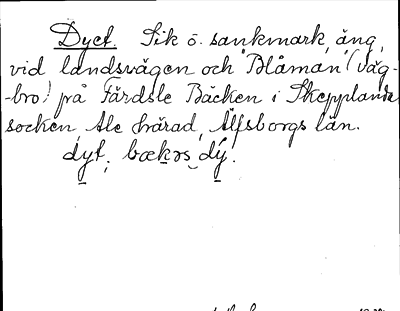 Dyet. Sik o. sankmark, äng,
vid landsvägen och "Blåman" (väg-
-bro) på Färdsle Bäcken i Skepplanda
socken, Ale härad, Älfsborgs län.
dyt; bækəs dy.